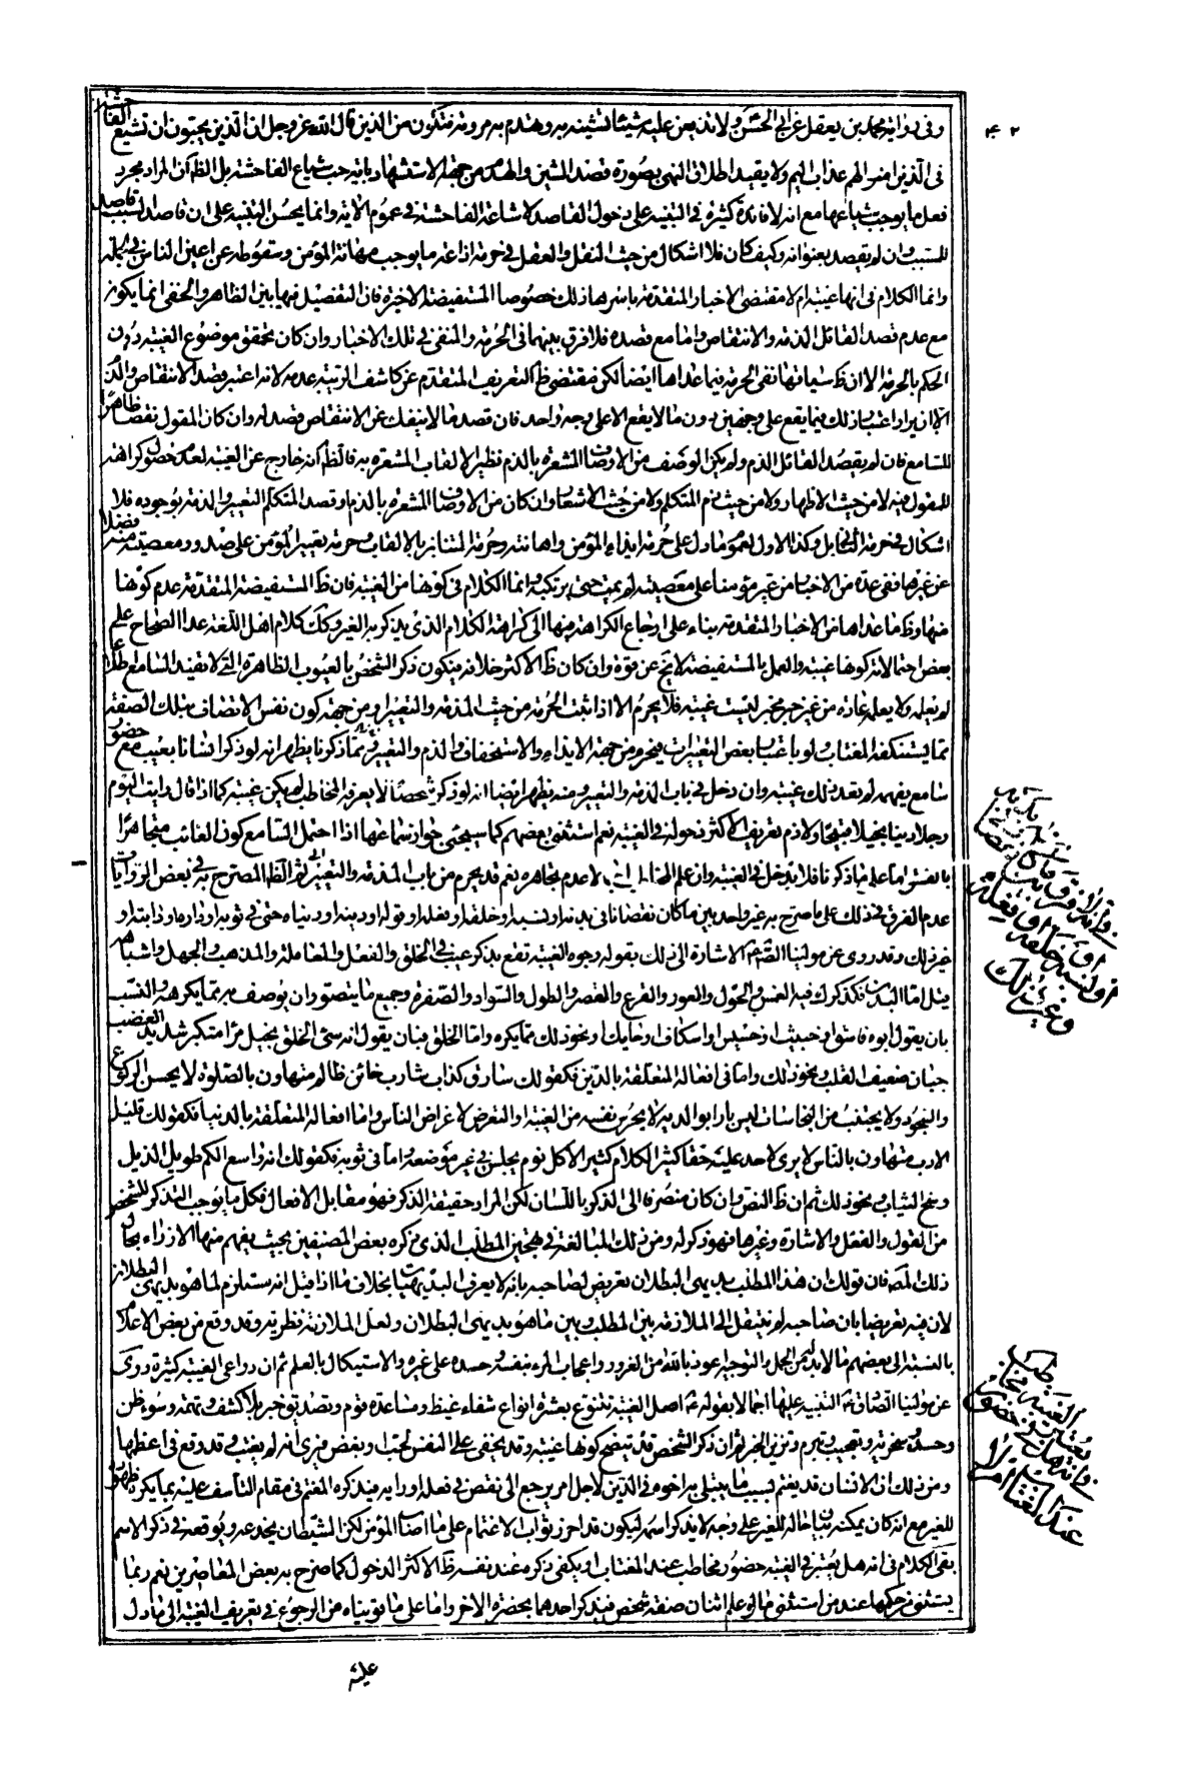 ٤٢
وفى رواية محمد بن يعقل عن ابى الحسن ولا تذيعن عليه شيئا تشينه به وتهدم به مروته فتكون من الذين قال الله عز وجل ان الذين يحبون ان تشيع الفاحشة
فى الذين امنوا لهم عذاب اليم ولا يقيد اطلاق النهى بصورة قصد الشين والهدم من جهة الاستشهاد باية حب شياع الفاحشة بل الظ ان المراد مجرد
فعل ما يوجب شياعها مع انه لا فائدة كثيرة فى التنبيه على دخول القاصد لاشاعة الفاحشة فى عموم الاية وانما يحسن التنبيه على ان قاصد السبب قاصد
للمسبب وان لم يقصد بعنوانه وكيف كان فلا اشكال من حيث النقل والعقل فى حرمة اذاعة ما يوجب مهانة المؤمن وسقوطه عن اعين الناس فى الجملة
وانما الكلام فى انها غيبة ام لا مقتضى الاخبار المتقدمة باسرها ذلك خصوصا المستفيضة الاخيرة فان التفصيل فيها بين الظاهر والخفى انما يكون
مع عدم قصد القائل المذمة والانتقاص واما مع قصده فلا فرق بينهما فى الحرمة والمنفى فى تلك الاخبار وان كان تحقق موضوع الغيبة دون
الحكم بالحرمة الا ان ظ سياقها نفى الحرمة فيما عداها ايضا لكن مقتضى ظ التعريف المتقدم عن كاشف الريبة عدمه لانه اعتبر قصد الانتقاص والذم
الا ان يراد اعتبار ذلك فيما يقع على وجهين دون ما لا يقع الا على وجه واحد فان قصد ما لا ينفك عن الانتقاص قصد له وان كان المقول نقصا ظاهرا
للسامع فان لم يقصد القائل الذم ولم يكن الوصف من الاوصاف المشعرة بالذم نظير الالقاب المشعرة به فالظ انه خارج عن الغيبة لعدم حصول كراهة
للمقول فيه لا من حيث الاظهار ولا من حيث ذم المتكلم ولا من حيث الاشعار وان كان من الاوصاف المشعرة بالذم او قصد المتكلم التعيير والمذمة بوجوده فلا
اشكال فى حرمة الثانى بل وكذا الاول لعموم ما دل على حرمة ايذاء المؤمن واهانته وحرمة التنابز بالالقاب وحرمة تعيير المؤمن على صدور معصية منه فضلا
عن غيرها ففى عدة من الاخبار من عير مؤمنا على معصية لم يمت حتى يرتكبه وانما الكلام فى كونها من الغيبة فان ظ المستفيضة المتقدمة عدم كونها
منها وظ ما عداها من الاخبار المتقدمة بناء على ارجاع الكراهة فيها الى كراهة الكلام الذى يذكر به الغير وكك كلام اهل اللغة عدا الصحاح على
بعض احتمالاته كونها غيبة والعمل بالمستفيضة لا يخ عن قوة وان كان ظ الاكثر خلافه فيكون ذكر الشخص بالعيوب الظاهرة التى لا تفيد السامع اطلاعا
لم يعلمه ولا يعلمه عادة من غير خبر مخبر ليست غيبة فلا يحرم الا اذا ثبت الحرمة من حيث المذمة والتعيير او من جهة كون نفس الاتصاف بتلك الصفة
مما يستنكفه المغتاب ولو باعتبار بعض التعبيرات فيحرم من جهة الايذاء والاستخفاف والذم والتعيير ثم مما ذكرنا يظهر انه لو ذكر انسانا بعيب مع حضور
سامع يفهمه لم يعد ذلك غيبة وان دخل فى باب المذمة والتعيير ومنه يظهر ايضا انه لو ذكر شخصا لا يعرفه المخاطب لم يكن غيبة كما اذا قال رايت اليوم
رجلا دينا بخيلا مبتلى ولازم تعريف الاكثر دخوله فى الغيبة نعم استثنى بعضهم كما سيجئ جواز سماعها اذا احتمل السامع كون الغائب متجاهرا
عدم الفرق فى ذلك على ما صرح به غير واحد بين ما كان نقصانا فى بدنه او نسبه او خلقه او فعله او قوله او دينه او دنياه حتى فى ثوبه او داره او دابته او
غير ذلك وقد روى عن مولينا الصادق الاشارة الى ذلك بقوله وجوه الغيبة تقع بذكر عيب فى الخلق والفعل والمعاملة والمذهب والجهل واشباهه
قيل اما البدن فكذكرك فيه العمش والحول والعور والقرع والقصر والطول والسواد والصفرة وجميع ما يتصور ان يوصف به مما يكرهه والنسب
بان يقول ابوه فاسق او خبيث او خسيس او اسكاف او حائك او نحو ذلك مما يكره واما الخلق فبان يقول انه سئ الخلق بخيل مراء متكبر شديد الغضب
جبان ضعيف القلب ونحو ذلك واما فى افعاله المتعلقة بالدين فكقولك سارق كذاب شارب خائن ظالم متهاون بالصلوة لا يحسن الركوع
والسجود ولا يجتنب من النجاسات ليس بارا بوالديه لا يحرس نفسه من الغيبة والتعرض لاعراض الناس واما افعاله المتعلقة بالدنيا فكقولك قليل
الادب متهاون بالناس لا يرى لاحد عليه حقا كثير الكلام كثير الاكل نؤم يجلس فى غير موضعه واما فى ثوبه فكقولك انه واسع الكم طويل الذيل
وسخ الثياب ونحو ذلك ثم ان ظ النص وان كان منصرفا الى الذكر باللسان لكن المراد حقيقة الذكر فهو مقابل الاغفال فكل ما يوجب التذكر للشخص
من القول والفعل والاشارة وغيرها فهو ذكر له ومن ذلك المبالغة فى تهجين المطلب الذى ذكره بعض المصنفين بحيث يفهم منها الازراء بحال
ذلك المص فان قولك ان هذا المطلب بديهى البطلان تعريض لصاحبه بانه لا يعرف البديهيات بخلاف ما اذا قيل انه مستلزم لما هو بديهى البطلان
لان فيه تعريضا بان صاحبه لم ينتقل الى الملازمة بين المطلب وبين ما هو بديهى البطلان ولعل الملازمة نظرية وقد وقع من بعض الاعلام
بالنسبة الى بعضهم ما لا بد له من الحمل والتوجيه اعوذ بالله من الغرور واعجاب المرء بنفسه وحسده على غيره والاستيكال بالعلم ثم ان دواعى الغيبة كثيرة روى
عن مولينا الصادق التنبيه عليها اجمالا بقوله اصل الغيبة تتنوع بعشرة انواع شفاء غيظ ومساعدة قوم وتصديق خبر بلا كشف وتهمة وسوء ظن
وحسد وسخرية وتعجب وتبرم وتزين الخبر ثم ان ذكر الشخص قد يتضح كونها غيبة وقد يخفى على النفس لحب او بغض فيرى انه لم يغتب وقد وقع فى اعظمها
ومن ذلك ان الانسان قد يغتم بسبب ما يبتلى به اخوه فى الدين لاجل امر يرجع الى نقص فى فعله او رايه فيذكره المغتم فى مقام التاسف عليه بما يكره ظهوره
للغير مع انه كان يمكنه بيان حاله للغير على وجه لا يذكر اسمه ليكون قد احرز ثواب الاغتمام على ما اصاب المؤمن لكن الشيطان يخدعه ويوقعه فى ذكر الاسم
بقى الكلام فى انه هل يعتبر فى الغيبة حضور مخاطب عند المغتاب او يكفى ذكره عند نفسه ظ الاكثر الدخول كما صرح به بعض المعاصرين نعم ربما
يستثنى من حكمها عند من استثنى ما لو علم اثنان صفة شخص فيذكر احدهما بحضرة الاخر واما على ما قويناه من الرجوع فى تعريف الغيبة الى ما دل
عليه